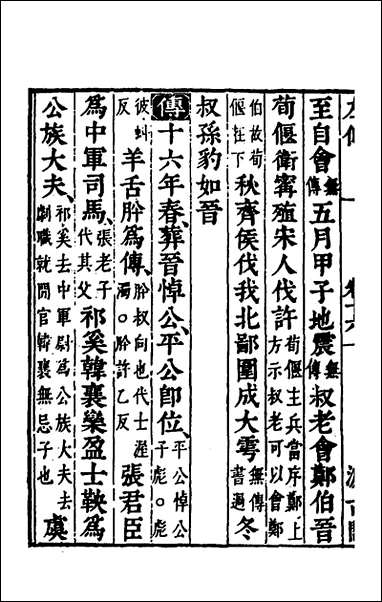 至自會無傳五月甲子地震無傳叔老會鄭伯晉
荀偃衛甯殖宋人伐許荀偃主兵當序鄭上方示叔老可以會鄭
伯故荀偃在下秋齊侯伐我北鄙圍成大雩無傳書過冬
叔孫豹如晉
傳十六年春、葬晉悼公、平公卽位、平公悼公子彪○彪
彼虯反羊舌肸爲傅、肸叔向也代士渥濁○肸許乙反張君臣
爲中軍司馬、張老子代其父祁奚韓襄欒盈士鞅爲
公族大夫、祁奚去中軍尉爲公族大夫去劇職就閒官韓襄無忌子也虞